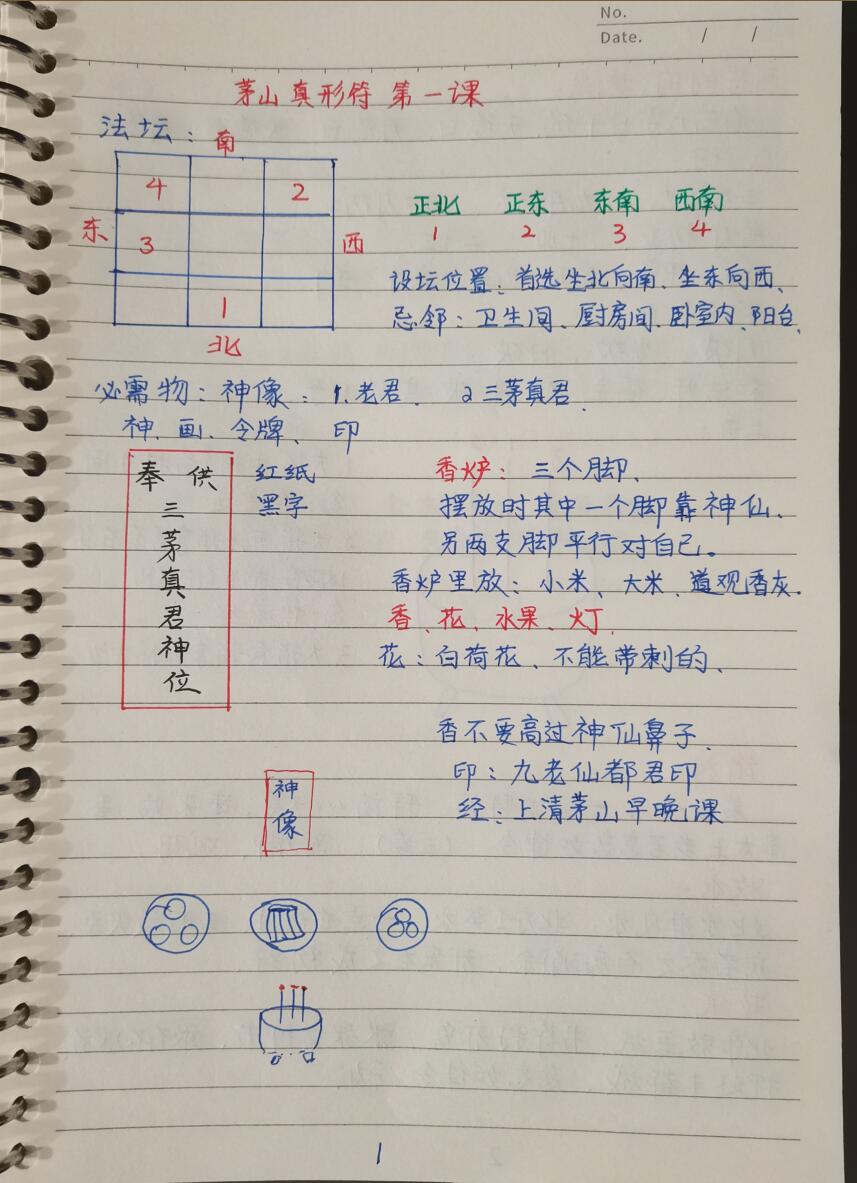 No.
Date. / /
茅山真形符 第一课
法坛：
南
4 2
正北 正东 东南 西南
1 2 3 4
东 3 西
设坛位置：首选坐北向南、坐东向西、
忌邻：卫生间、厨房间、卧室内、阳台、
1
北
必需物：神像：1.老君. 2三茅真君.
神、画、令牌、印
奉供
三茅真君神位
红纸
黑字
香炉：三个脚、
摆放时其中一个脚靠神仙、
另两支脚平行对自己。
香炉里放：小米、大米、道观香灰。
香、花、水果、灯、
花：白荷花、不能带刺的、
香不要高过神仙鼻子.
印：九老仙都君印
经：上清茅山早晚课
神像
1